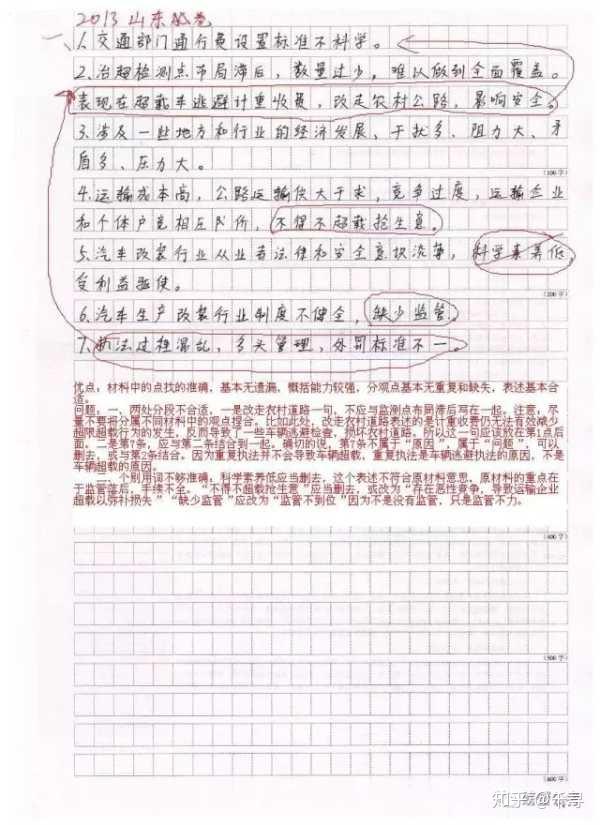 2013 山东试卷
一、1.交通部门通行费设置标准不科学。
2.治超检测点布局滞后，数量过少，难以做到全面覆盖。
表现在超载车逃避计重收费，改走农村公路，影响安全。
3.涉及一些地方和行业的经济发展、干扰多、阻力大、矛
盾多、压力大。
(100字)
4.运输成本高，公路运输供大于求，竞争过度，运输企业
和个体户竞相压价，不得不超载抢生意。
5.汽车改装行业从业者法律和安全意识淡薄，科学素养低，
受利益驱使。
(200字)
6.汽车生产改装行业制度不健全，缺少监管。
7.执法过程混乱，多头管理，处罚标准不一。
优点：材料中的点找的准确，基本无遗漏，概括能力较强，分观点基本无重复和缺失，表述基本合
适。
问题，一、两处分段不合适，一是改走农村道路一句，不应与监测点布局滞后写在一起。注意，尽
量不要将分属不同材料中的观点捏合。比如此处，改走农村道路表达的是计重收费仍无法有效减少
超限超载行为的发生，反而导致了一些车辆逃避检查，损坏农村道路。所以这一句应该放在第1点后
面。二是第7条，应与第二条结合到一起。确切的说，第7条不属于“原因”，属于“问题”，可以
删去，或与第2条结合。因为重复执法并不会导致车辆超载，重复执法是车辆逃避执法的原因，不是
车辆超载的原因。
二、个别用词不够准确：科学素养低应当删去，这个表述不符合原材料意思，原材料的重点在
于监管落后，手续不全。“不得不超载抢生意”应当删去，或改为“存在恶性竞争，导致运输企业
超载以弥补损失”“缺少监管”应改为“监管不到位”因为不是没有监管，只是监管不力。
(400字)
(500字)
(600字)
知乎 @乐寻